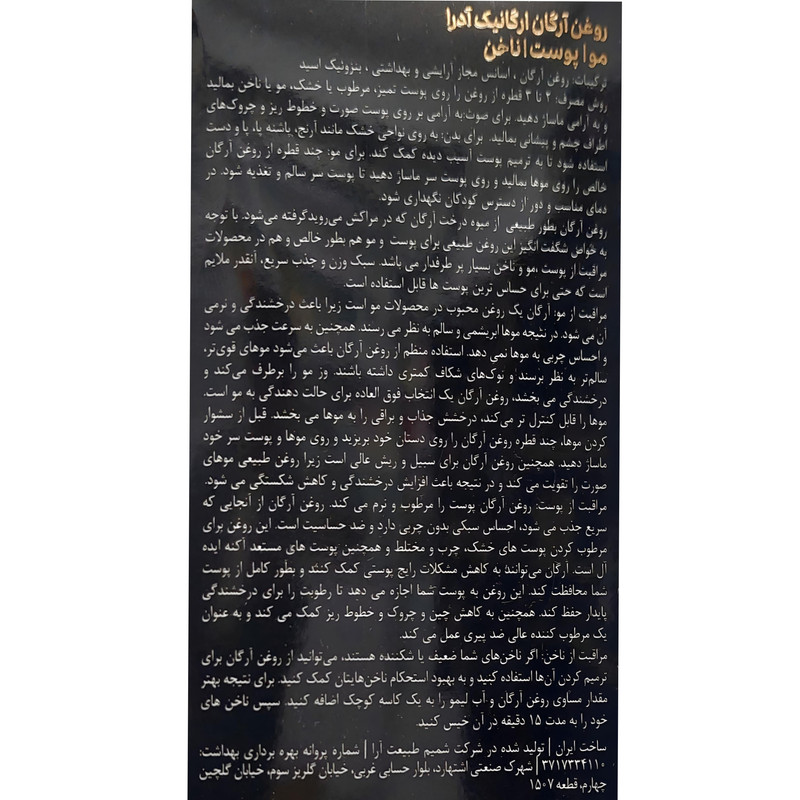 روغن آرگان ارگانیک آدرا
مو | پوست | ناخن
ترکیبات: روغن آرگان ، اسانس مجاز آرایشی و بهداشتی ، بنزوئیک اسید
روش مصرف: ۲ تا ۳ قطره از روغن را روی پوست تمیز، مرطوب یا خشک، مو یا ناخن بمالید
و به آرامی ماساژ دهید. برای صورت: به آرامی بر روی پوست صورت و خطوط ریز و چروک‌های
اطراف چشم و پیشانی بمالید. برای بدن: به روی نواحی خشک مانند آرنج، پاشنه پا، پا و دست
استفاده شود تا به ترمیم پوست آسیب دیده کمک کند. برای مو: چند قطره از روغن آرگان
خالص را روی موها بمالید و روی پوست سر ماساژ دهید تا پوست سر سالم و تغذیه شود. در
دمای مناسب و دور از دسترس کودکان نگهداری شود.
روغن آرگان بطور طبیعی از میوه درخت آرگان که در مراکش می‌رویدگرفته می‌شود. با توجه
به خواص شگفت انگیز این روغن طبیعی برای پوست و مو هم بطور خالص و هم در محصولات
مراقبت از پوست ،مو و ناخن بسیار پر طرفدار می باشد. سبک وزن و جذب سریع، آنقدر ملایم
است که حتی برای حساس ترین پوست ها قابل استفاده است.
مراقبت از مو: آرگان یک روغن محبوب در محصولات مو است زیرا باعث درخشندگی و نرمی
آن می شود. در نتیجه موها ابریشمی و سالم به نظر می رسند. همچنین به سرعت جذب می شود
و احساس چربی به موها نمی دهد. استفاده منظم از روغن آرگان باعث می‌شود موهای قوی‌تر،
سالم‌تر به نظر برسند و نوک‌های شکاف کمتری داشته باشند. وز مو را برطرف می‌کند و
درخشندگی می بخشد، روغن آرگان یک انتخاب فوق العاده برای حالت دهندگی به مو است.
موها را قابل کنترل تر می‌کند، درخشش جذاب و براقی را به موها می بخشد. قبل از سشوار
کردن موها، چند قطره روغن آرگان را روی دستان خود بریزید و روی موها و پوست سر خود
ماساژ دهید. همچنین روغن آرگان برای سبیل و ریش عالی است زیرا روغن طبیعی موهای
صورت را تقویت می کند و در نتیجه باعث افزایش درخشندگی و کاهش شکستگی می شود.
مراقبت از پوست: روغن آرگان پوست را مرطوب و نرم می کند. روغن آرگان از آنجایی که
سریع جذب می شود، احساس سبکی بدون چربی دارد و ضد حساسیت است. این روغن برای
مرطوب کردن پوست های خشک، چرب و مختلط و همچنین پوست های مستعد آکنه ایده
آل است. آرگان می‌تواند به کاهش مشکلات رایج پوستی کمک کند و بطور کامل از پوست
شما محافظت کند. این روغن به پوست شما اجازه می دهد تا رطوبت را برای درخشندگی
پایدار حفظ کند. همچنین به کاهش چین و چروک و خطوط ریز کمک می کند و به عنوان
یک مرطوب کننده عالی ضد پیری عمل می کند.
مراقبت از ناخن: اگر ناخن‌های شما ضعیف یا شکننده هستند، می‌توانید از روغن آرگان برای
ترمیم کردن آن‌ها استفاده کنید و به بهبود استحکام ناخن‌هایتان کمک کنید. برای نتیجه بهتر
مقدار مساوی روغن آرگان و آب لیمو را به یک کاسه کوچک اضافه کنید. سپس ناخن های
خود را به مدت ۱۵ دقیقه در آن خیس کنید.
ساخت ایران | تولید شده در شرکت شمیم طبیعت آرا | شماره پروانه بهره برداری بهداشت:
۳۷۱۷۳۳۴۱۱۰| شهرک صنعتی اشتهارد، بلوار حسابی غربی، خیابان گلریز سوم، خیابان گلچین
چهارم، قطعه ۱۵۰۷